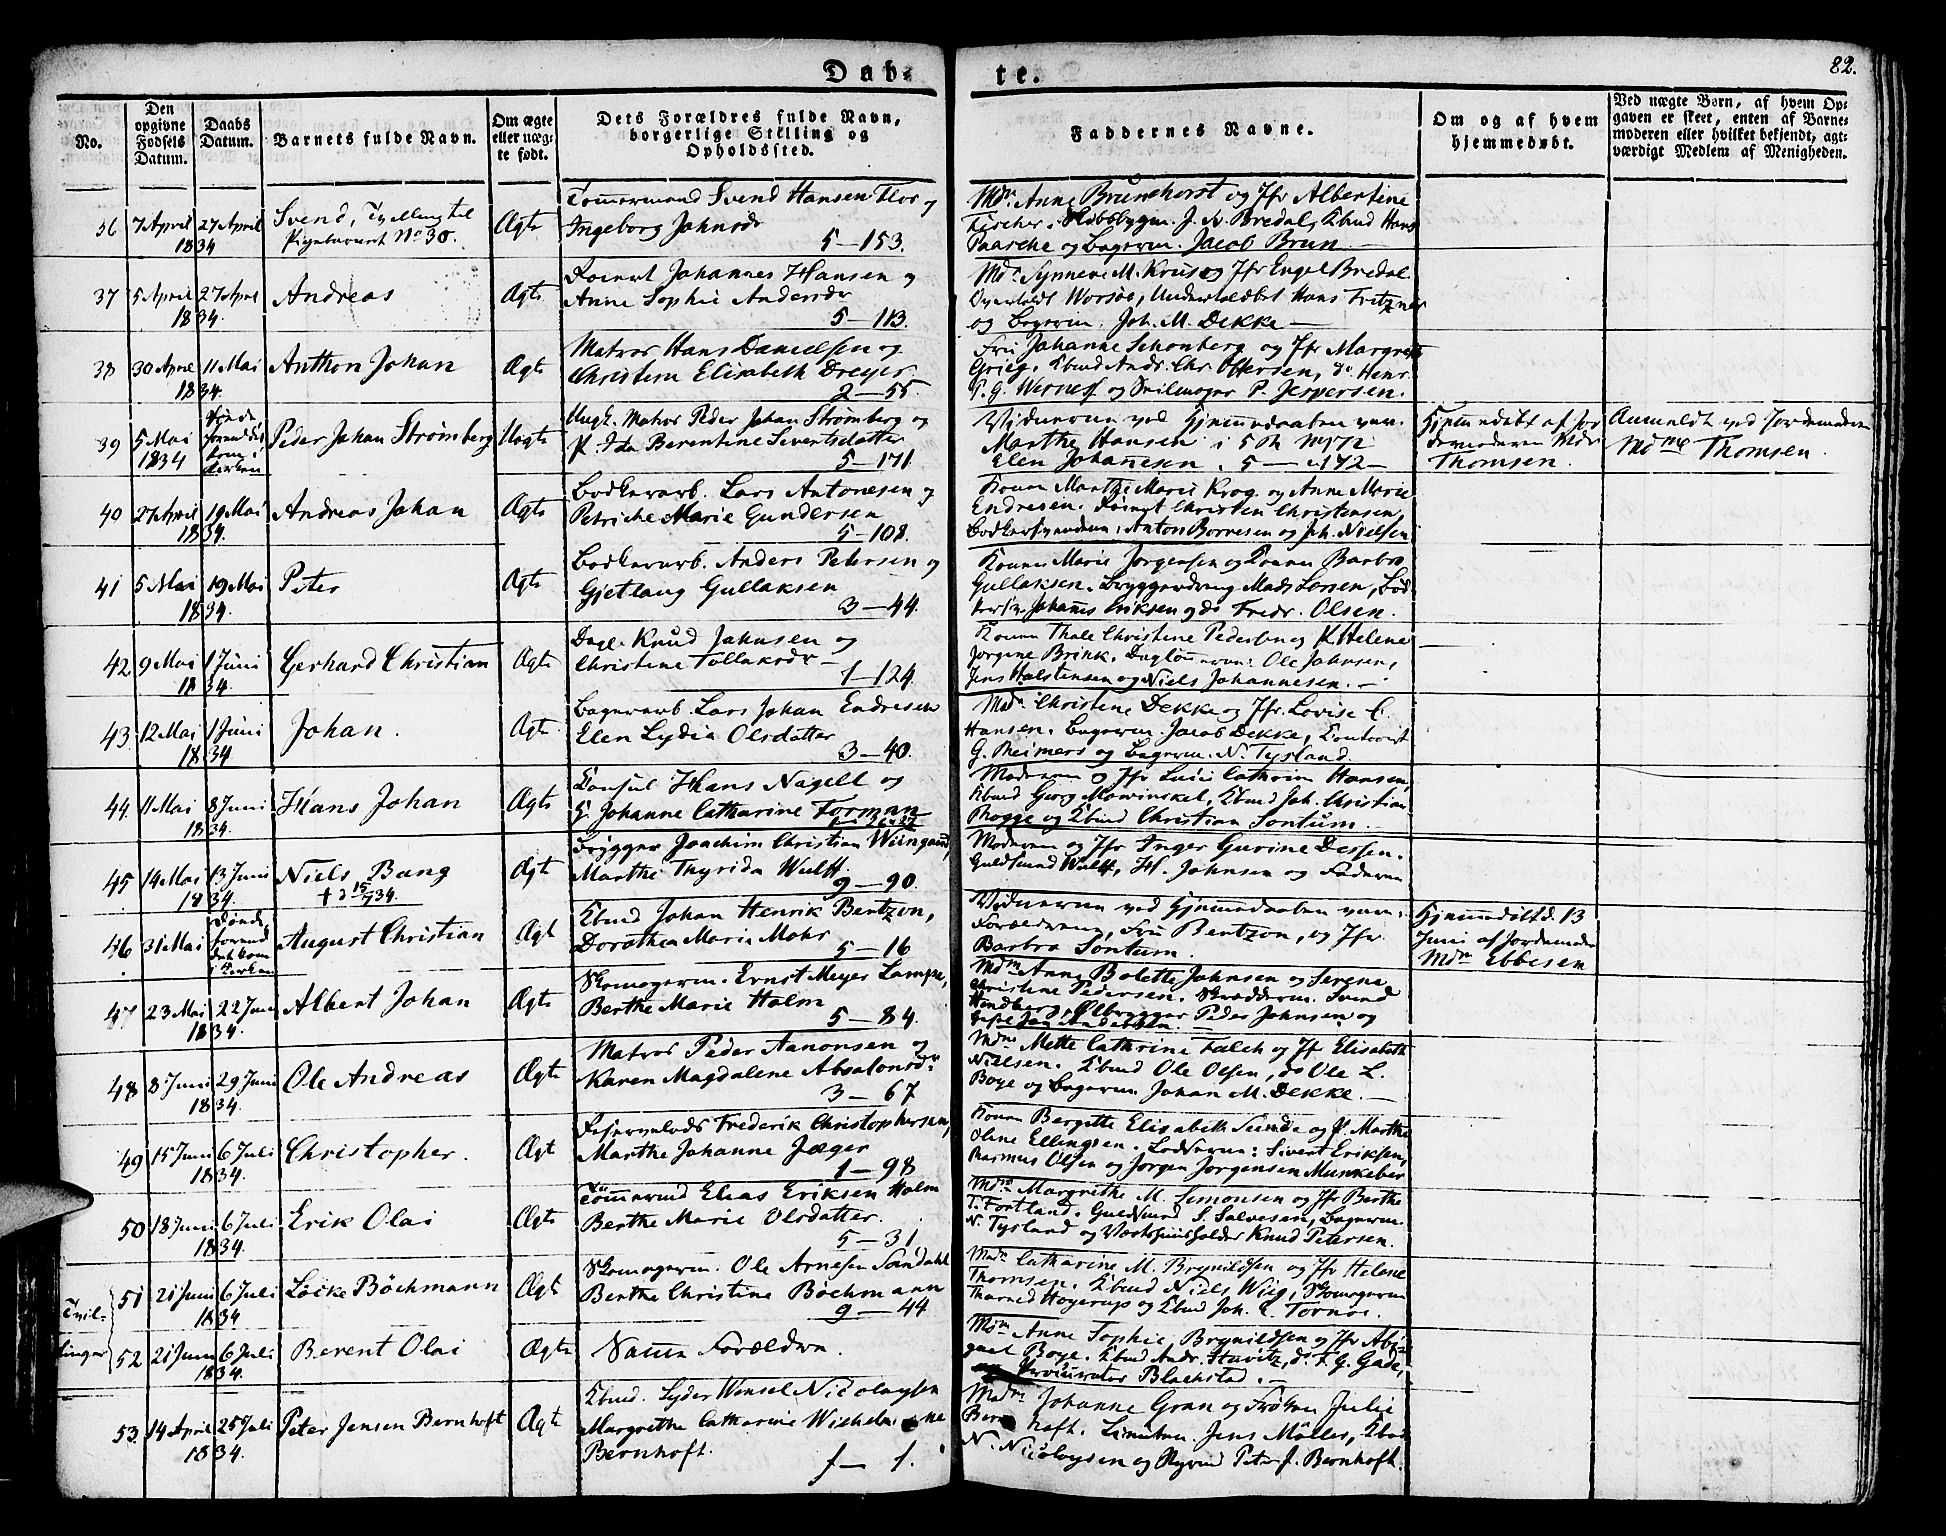 Dab=
te.
82.
No.
Den opgivne Fødsels Datum.
Daabs Datum.
Barnets fulde Navn.
Om ægte eller uæg= te født.
Dets Forældres fulde Navn, borgerlige Stilling og Opholdssted.
Faddernes Navne.
Om og af hvem hjemmedøbt.
Ved uægte Børn, af hvem Op= gaven er skeet, enten af Barne= moderen eller hvilket bekjendt, agt= værdigt Medlem af Menigheden.
36 7 April 27 April Svend, Tvelling til Ægte Tømermand Svend Hansen Flor og
1834 Pigebarnet No 30. Ingeborg Johnsdr
5-153.
Mdm Anne Brunchorst og Jfr Albertine
Fischer. Skibsbygm. J. Bredal, Kbmd Hans
Paasche og Bagerm. Jacob Brun
37 5 April 27 Apri Andreas Ægte Johannes Hansen og
1834. Anne Sophie Andersdr
5-113.
Mdm Synneve M. Kruse og Jfr Engel Bredal.
Worsøe, Hans Fritzner
og Bagerm. Joh. M. Dekke
38 30 April 11 Mai Anthon Johan Ægte Matros Hans Danielsen og
1834. Christine Elisabeth Dreyer
2-55.
Fru Johanne Schonberg og Jfr Margrethe
Grieg. Kbmd Andr. Chr. Ottersen, do Henr.
P. G. Werness og Seilmager P. Jespersen.
39 5 Mai Peder Johan Strømberg Uægte Ungk. Matros Peder Johan Strømberg og
1834 P. Ida Berentine Sivertsdatter
5-171.
Vidnerne ved Hjemmedaaben vare
Marthe Hansen i 5 R No 172
Elen Johannesen. 5 - 172-
Hjemmedøbt af Jor
demoderen Mdm
Thomsen.
Anmeldt ved Jordemoderen
Mdme Thomsen.
40 27 April 19 Mai Andreas Johan Ægte Bødkerarb. Lars Antonesen og
1834. Petriche Marie Gundersen
5-108.
Konen Marthe Marie Krog. og Anne Marie
Endresen. Christen Christensen,
Bødkersvendene: Anton Borresen og Joh. Nielsen.
41 5 Mai 19 Mai Peter Ægte Bødkerarb. Anders Petersen og
1834. Gjetlaug Gullaksen
3-44.
Konen Marie Jørgensen og Konen Barbra
Gullaksen. Bryggerdreng Mads Larsen, Bød
kersv. Johannes Eriksen og do Fredr. Olsen.
42 9 Mai 1 Juni Gerhard Christian Ægte Dagl. Knud Johnsen og
1834. Christine Tollaksdr
1-124.
Konen Thale Christine Pedersen og P. Helene
Jørgene Brink. Ole Johnsen,
Jens Halstensen og Niels Johannesen.
43 12 Mai 1 Juni Johan. Ægte Bagerarb. Lars Johan Endresen
1834 Elen Lydia Olsdatter
3-40.
Mdm Christene Dekke og Jfr. Lovise C.
Hansen. Bagerm. Jacob Dekke, Contorist
G. Reimers og Bagerm. N. Tysland.
44. 11 Mai 8 Juni Hans Johan Ægte Consul Hans Nagell og
1834. Johanne Catharine Forman
Moderen og Jfr Lucie Cathrine Hansen,
Kbmd Georg Mowinckel, Kbmd Joh. Christian
Rogge og Kbmd Christian Sontum.
45 14 Mai 13 Juni Niels Bang Ægte Brygger Joachim Christian Wiingaard,
1834. Marthe Thyrida Wulff.
9-90.
Moderen og Jfr Inger Gurine Dessen.
Guldsmed Wulff, H. Johnsen og Faderen
46 31 Mai August Christian Ægt Kbmd Johan Henrik Bentzon,
Dorothea Marie Mohr
5-16
Vidnerne ved Hjemmedaaben vare:
Forældrene, Fru Bentzon, og Jfr.
Barbra Sontum.
Hjemmedøbt d. 13
Juni af Jordemoder
Mdm Ebbesen
47 23 Mai 22 Juni Albert Johan Ægte Skomagerm. Ernst Meyer Lampe,
1834. Berthe Marie Holm
5-84.
Mdm Anne Bolette Johnsen og Serene
Christine Pedersen. Skrædderm. Svend
Ølbrygger Peder Johnsen og
48 8 Juni 29 Juni Ole Andreas Ægte Matros Peder Aanonsen og
1834. Karen Magdalene Absalonsdr
3-67
Mdm Mette Cathrine Falch og Jfr Elisabeth
Nielsen. Kbmd Ole Olsen, do Ole L.
Boye og Bagerm. Johan M. Dekke.
49 15 Juni 6 Juli Christopher. Ægt Frederik Christophersen,
1834. Marthe Johanne Jæger
1-98
Konen Bergitte Elisabeth Sunde og P. Marthe
Olene Ellingsen. Sivert Eriksen,
Rasmus Olsen og Jørgen Jørgensen Munkebø
50 18 Juni 6 Juli Erik Olai Ægte Tømmermd Elias Eriksen Holm
1834. Berthe Marie Olsdatter.
5-31.
Mdm Margrethe M. Simonsen og Jfr Berthe
T. Fortland. Guldsmed S. Salvesen, Bagerm.
N. Tysland og Værtshuusholder Knud Petersen.
Tvil-
linger
51 21 Juni 6 Juli Løcke Böchmann Ægte Skomagerm. Ole Arnesen Sandahl
1834 Berthe Christine Böchmann
9-44
Mdm Catharine M. Brynildsen og Jfr Helene
Thomsen. Kbmd Niels Wiig, Skomagerm
Tharned Høyerup og Kbmd Joh. E. Tornøe.
52 21 Juni 6 Juli Berent Olai Ægte Samme Forældre.
1834.
Mdm Anne Sophie Brynildsen og Jfr Abi-
gael Boye. Kbmd Andr. Huvitz, do F. G. Gade,
Procurator Blackstad.
53. 14 April 25 Juli Peter Jensen Bernhoft Ægte Kbmd. Lyder Wensel Nicolaysen
1834. Margrethe Catharine Wilhelmine
Bernhoft. 1-1.
Madm Johanne Gran og Frøken Julie
Bernhoft. Jens Möller, Kbmd
N. Nicolaysen og Peter J. Bernhoft.